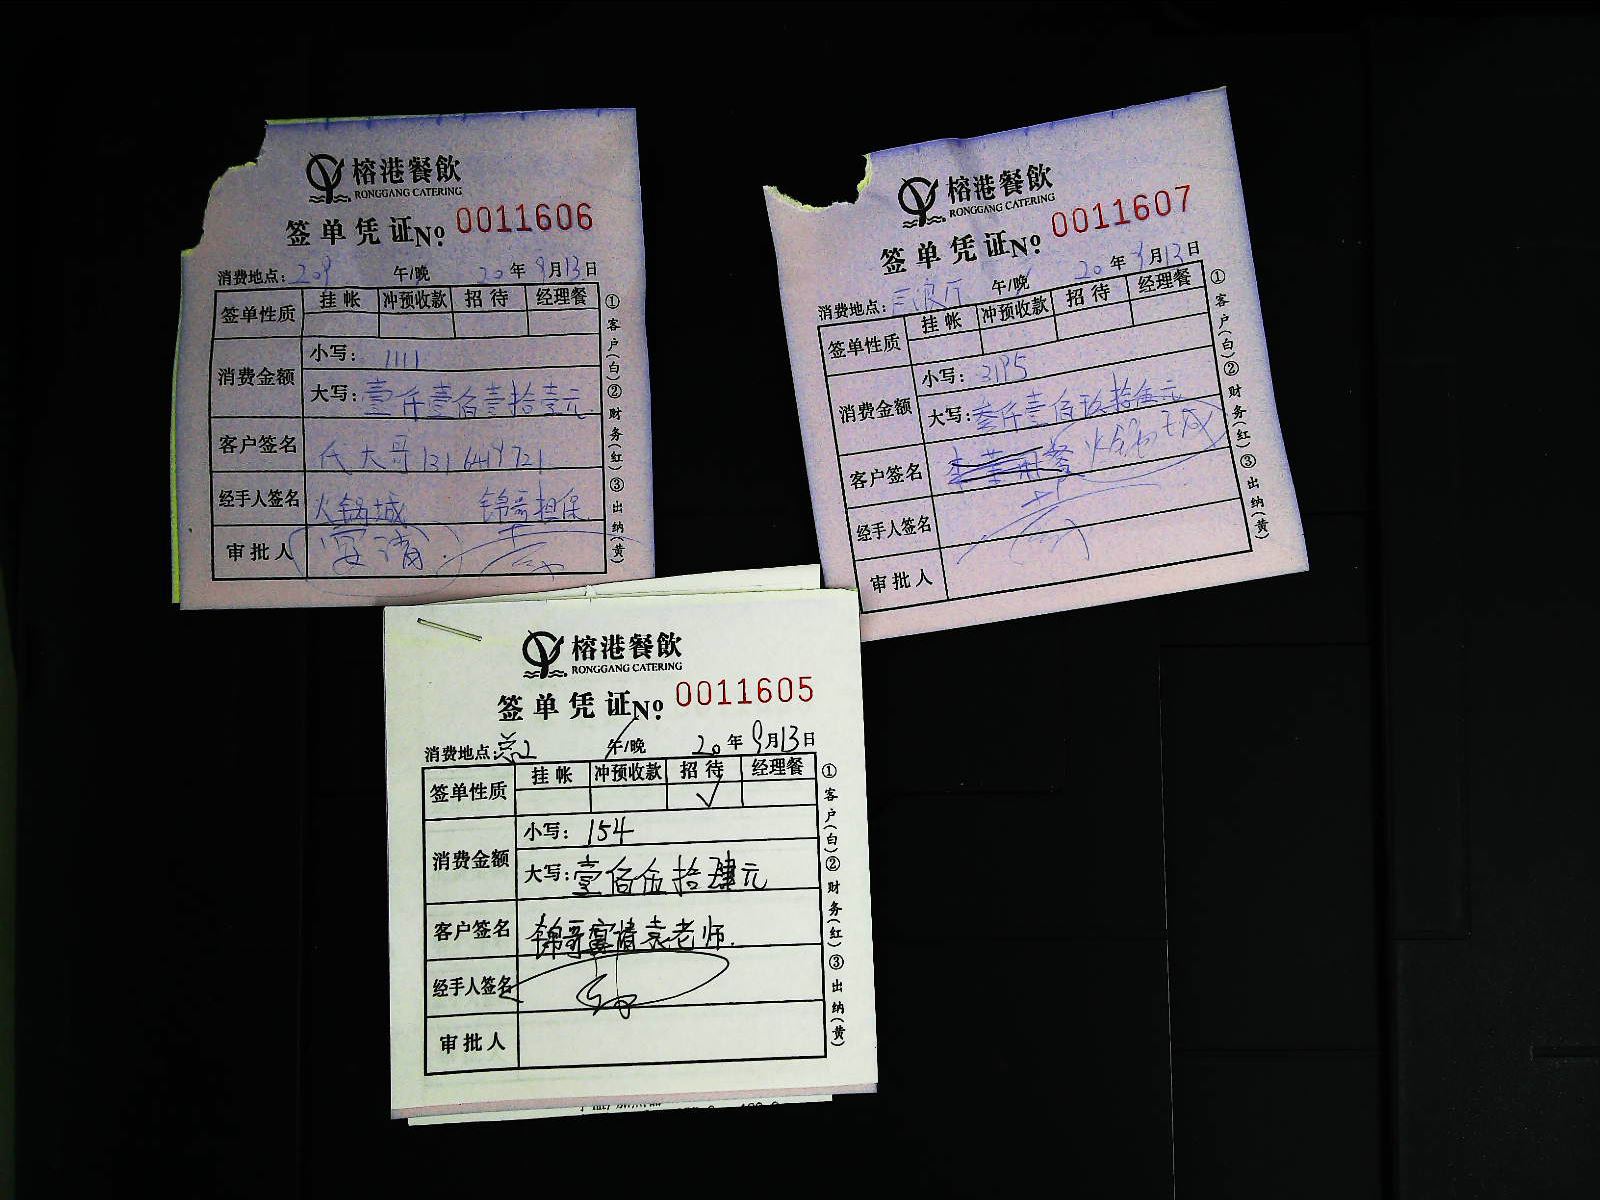 榕港餐飲
RONGGANG CATERING
签单凭证No. 0011606
消费地点: 209 午/晚 20年9月13日
签单性质 挂帐 冲预收款 招待 经理餐
消费金额 小写: 1111
大写: 壹仟壹佰壹拾壹元
客户签名 代大哥
经手人签名 火锅城 锦哥担保
审批人
①客户(白)②财务(红)③出纳(黄)
榕港餐飲
RONGGANG CATERING
签单凭证No. 0011607
消费地点: 午/晚 20年9月13日
签单性质 挂帐 冲预收款 招待 经理餐
消费金额 小写: 3195
大写: 叁仟壹佰玖拾伍元
客户签名 火锅城
经手人签名
审批人
①客户(白)②财务(红)③出纳(黄)
榕港餐飲
RONGGANG CATERING
签单凭证No. 0011605
消费地点: 总2 午/晚 20年9月13日
签单性质 挂帐 冲预收款 招待 经理餐
✓
消费金额 小写: 154
大写: 壹佰伍拾肆元
客户签名 锦哥宴请袁老师.
经手人签名
审批人
①客户(白)②财务(红)③出纳(黄)